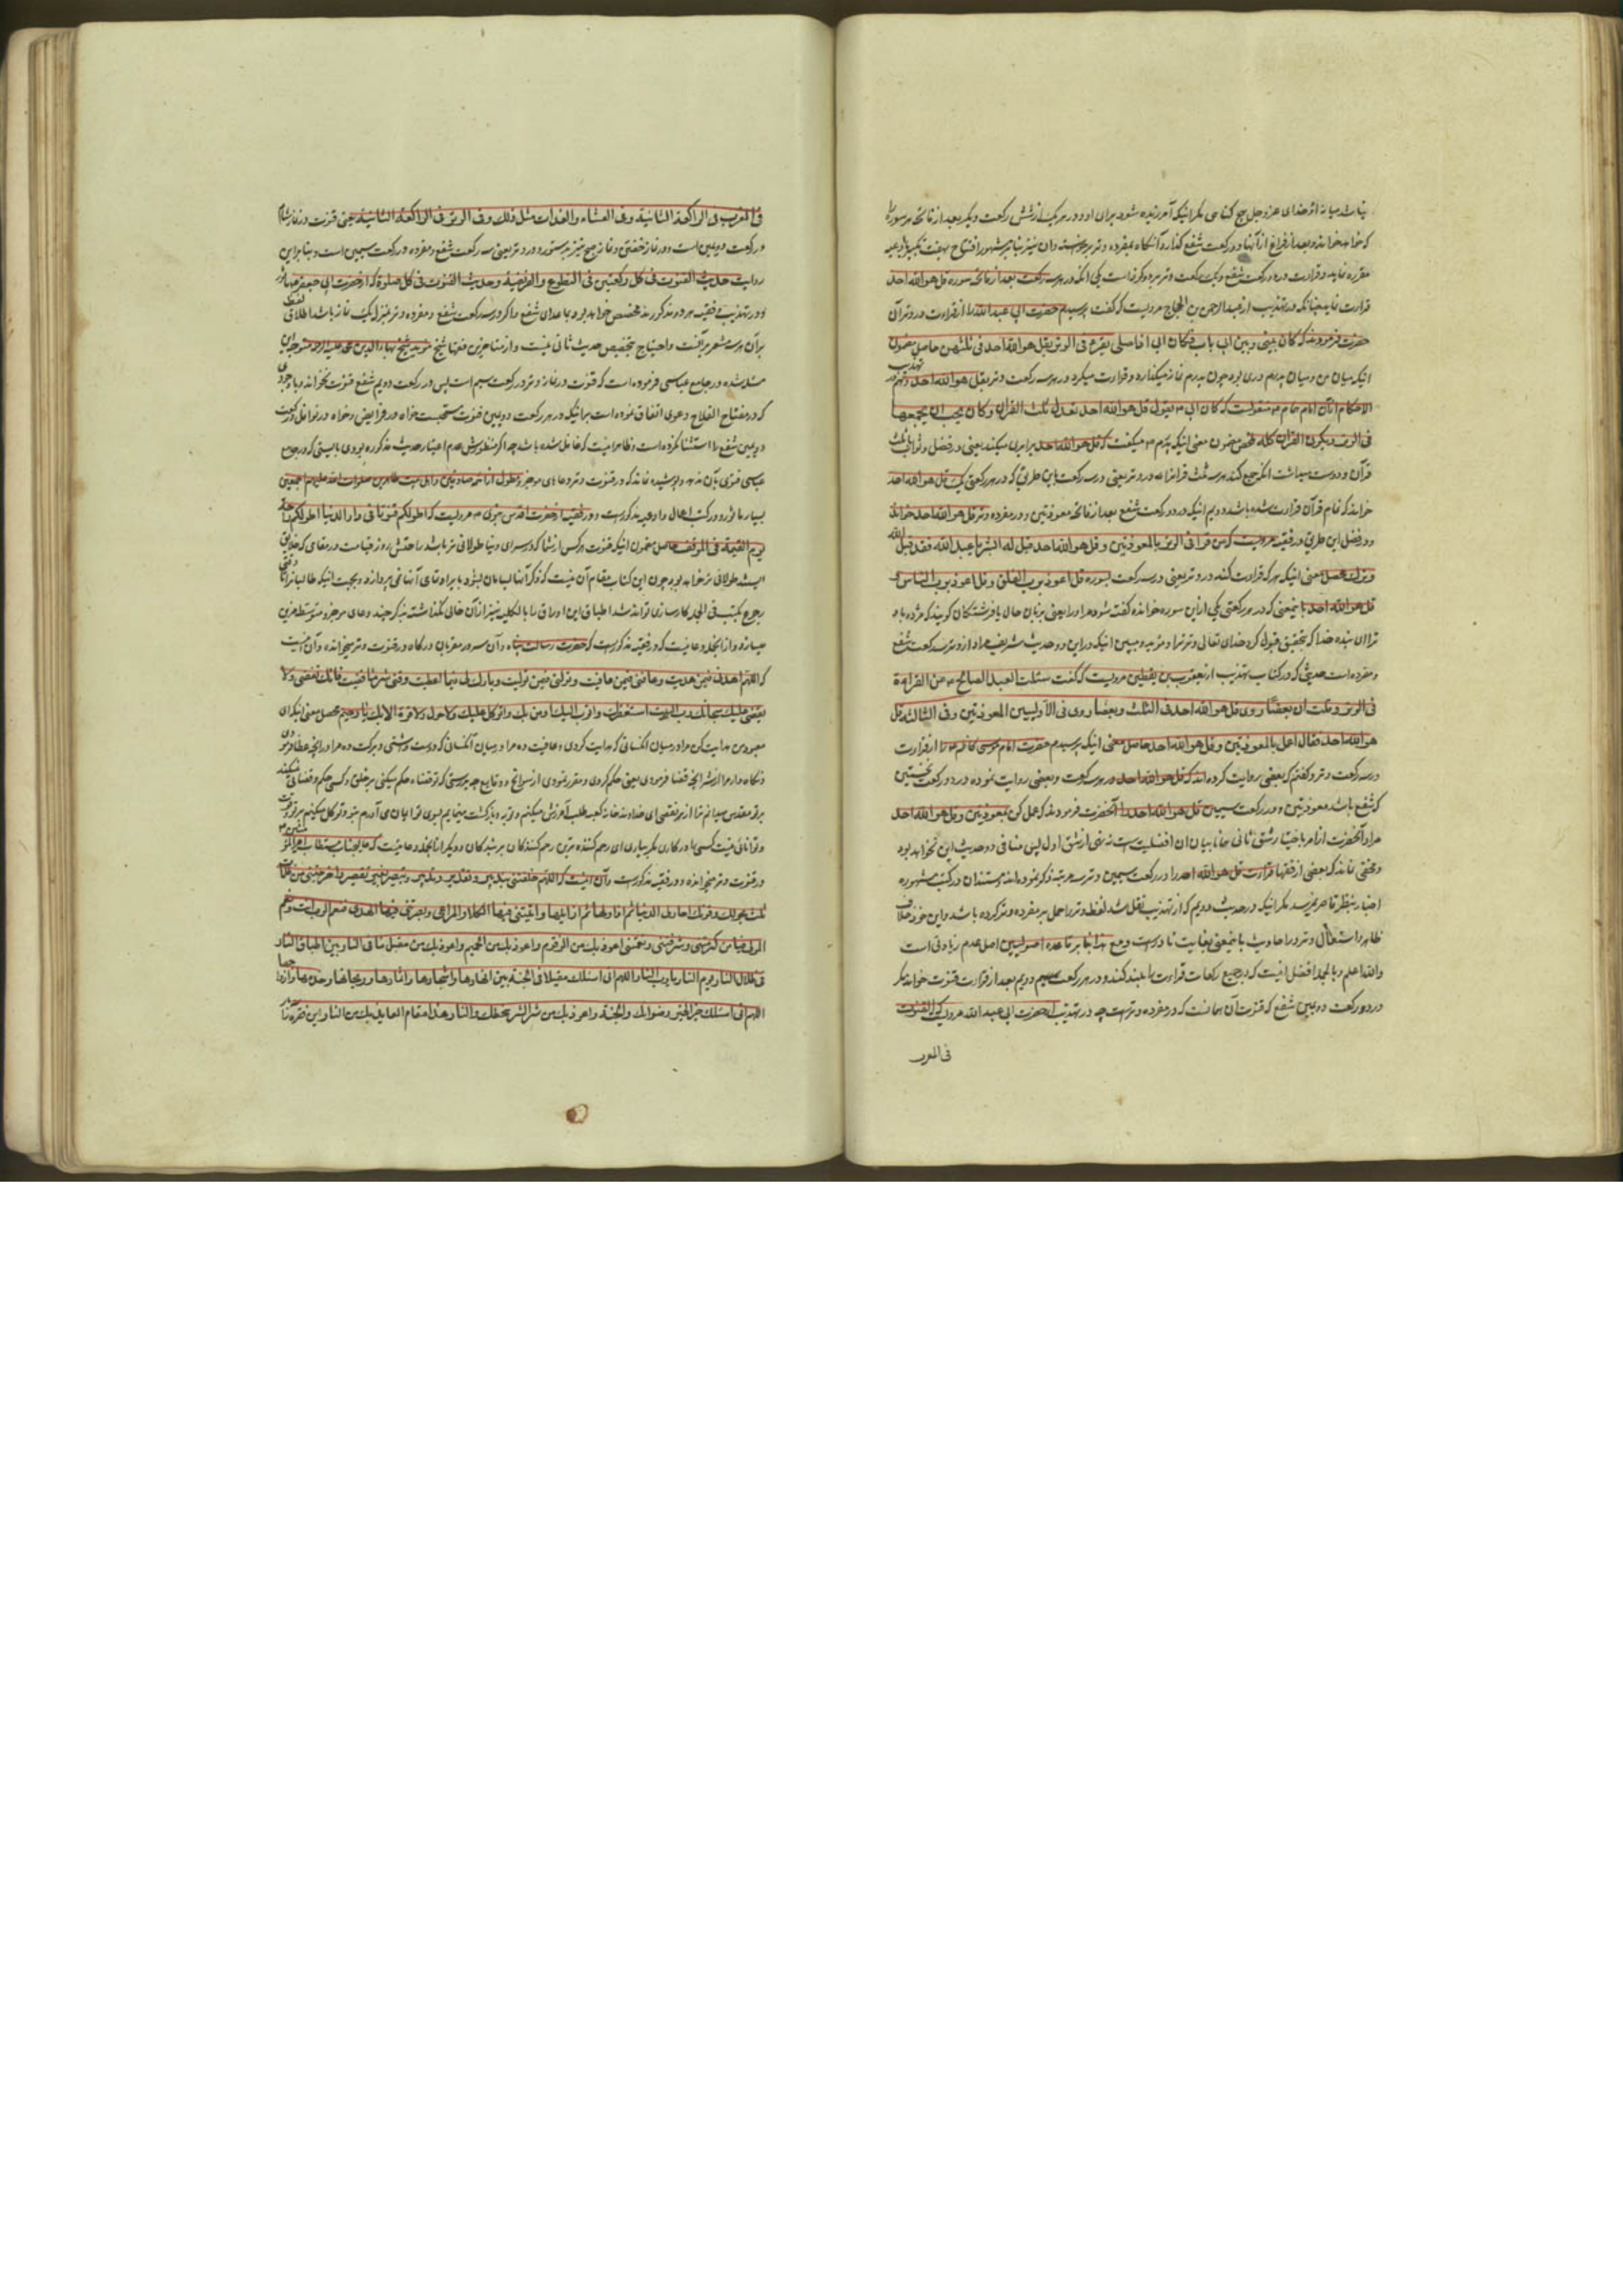 نباشد میانه او و خدای عز و جل هیچ کناهی مکر انیکه آمرزیده شود برای او و در هر یک از شش رکعت دیکر بعد از فاتحه هر سوره
که خواهد خواند و بعد از فراغ از آنها دو رکعت شفع کذارد و آنکاه بمفرده وتر برخیزد و آن نیز بنابر مشهور افتتاح بهفت تکبیر و ادعیه
مقرره نماید و قراءت در دو رکعت شفع و یک رکعت وتر بر دو کونه است یکی انکه در هر سه رکعت بعد از فاتحه سوره قل هو الله احد
قراءت نماید چنانکه در تهذیب از عبد الرحمن بن الحجاج مرویست که کفت پرسیدم حضرت ابی عبد الله را از قراءت در وتر آن
حضرت فرمودند که کان بینی و بین ابی باب فکان ابی اذا صلی یقرء فی الوتر بقل هو الله احد فی ثلثهن حاصل مضمون
انیکه میان من و میان پدرم دری بود چون پدرم نماز میکذارد و قراءت میکرد در هر سه رکعت وتر بقل هو الله احد و هم در تهذیب
الاحکام از آن امام همام منقولست که کان ابی یقول قل هو الله احد تعدل ثلث القرآن و کان یحب ان یجمعها
فی الوتر و یکون القرآن کله ملخص مضمون معنی انیکه پدرم میکفت که قل هو الله احد برابری میکند یعنی در فضل و ثواب با ثلث
قرآن و دوست میداشت انکه جمع کند هر سه ثلث قرآن را در وتر یعنی در سه رکعت باین طریق که در هر رکعتی یک قل هو الله احد
خواند که تمام قرآن قراءت شده باشد دویم انیکه در دو رکعت شفع بعد از فاتحه معوذتین و در مفرده وتر قل هو الله احد خواند
و در فضل این طریق در فقیه مرویست که من قرأ فی الوتر بالمعوذتین و قل هو الله احد قیل له ابشر یا عبد الله فقد قبل الله
وترک محصل معنی انیکه هر که قراءت کند در وتر یعنی در سه رکعت بسوره قل اعوذ برب الفلق و قل اعوذ برب الناس و
قل هو الله احد باینمعنی که در هر رکعتی یکی ازین سوره خوانده کفته شود مر او را یعنی بزبان حال یا فرشتکان کویند که مژده باد
ترا ای بنده خدا که بتحقیق قبول کرد خدای تعالی وتر ترا و مؤید و مبین انیکه در این دو حدیث شریف مراد از وتر سه رکعت شفع
و مفرده است حدیثی که در کتاب تهذیب از یعقوب بن یقطین مرویست که کفت سئلت العبد الصالح عن القراءة
فی الوتر و قلت ان بعضا روی قل هو الله احد فی الثلث و بعضا روی فی الاولیین المعوذتین و فی الثالثة قل
هو الله احد فقال اعمل بالمعوذتین و قل هو الله احد حاصل معنی انیکه پرسیدم حضرت امام موسی کاظم را از قراءت
در سه رکعت وتر و کفتم که بعضی روایت کرده اند که قل هو الله احد در هر سه رکعت و بعضی روایت نموده در دو رکعت نخستین
که شفع باشد معوذتین و در رکعت سیمین قل هو الله احد را آنحضرت فرمودند که عمل کن بمعوذتین و قل هو الله احد
مراد آنحضرت از امر باختیار شق ثانی همانا بیان ان افضلیت است نه نهی از شق اول پس منافی دو حدیث این نخواهد بود
و مخفی نماند که بعضی از فقها قراءت قل هو الله احد را در رکعت سیمین وتر سه مرتبه ذکر نموده اند مستند ان در کتب مشهوره
اخبار بنظر قاصر نرسید مکر انیکه در حدیث دویم که از تهذیب نقل شد لفظ وتر را حمل بر مفرده وتر کرده باشد و این خود خلاف
ظاهر و استعمال وتر در احادیث باینمعنی بغایت نادرست و مع هذا بنابر قاعده اصولیین اصل عدم زیادتی است
و الله اعلم و بالجمله افضل انیست که در جمیع رکعات قراءت را بلند کند و در هر رکعت سیم و دویم بعد از قراءت قنوت خواند مکر
در دو رکعت دویمین شفع که قنوت آن همانست که در مفرده وترست چه در تهذیب از حضرت ابی عبد الله مرویست که القنوت
فی المغرب
فی المغرب فی الراکعة الثانیة و فی العشاء و الغدات مثل ذلک و فی الوتر فی الراکعة الثالثة یعنی قنوت در نماز شام
در رکعت دویمین است و در نماز خفتن و نماز صبح نیز بدستور و در وتر یعنی سه رکعت شفع و مفرده در رکعت سیمین است و بنابراین
روایت حدیث القنوت فی کل رکعتین فی التطوع و الفریضة و حدیث القنوت فی کل صلوة که از حضرت ابی جعفر
و در تهذیب و فقیه هر دو مذکورند مخصص خواهد بود بما عدای شفع
بر آن هر سه مشعر بر آنست و احتیاج بتخصیص حدیث ثانی نیست و از متأخرین فقها شیخ مؤید شیخ بهاء الدین محمد علیه الرحمة
مسئله شده در جامع عباسی فرموده است که قنوت در نماز وتر در رکعت سیم است پس در رکعت دویم شفع قنوت نخواند و با وجودی
که در مفتاح الفلاح دعوی اتفاق نموده است بر انیکه در هر رکعت دویمین قنوت مستحبست خواه در فرایض و خواه در نوافل
دویمین شفع را استثنا نکرده است و ظاهر انیست که غافل شده باشد چه اکر منظورش عدم اعتبار حدیث مذکوره بودی بایستی که در جامع
عباسی فتوی بآن ندهد و پوشیده نماند که در قنوت وتر دعاهای موجز و مطول از ائمه صادقین و اهل بیت طاهرین صلوات الله علیهم اجمعین
بسیار ماثور و در کتب اعمال و ادعیه مذکورست و در فقیه از حضرت اقدس نبوی مرویست که اطولکم قنوتا فی دار الدنیا اطولکم راحة
یوم القیمة فی الموقف حاصل مضمون انیکه قنوت هر کس از شما که در سرای دنیا طولانی تر باشد راحتش روز قیامت در مقامی که خلایق
ایستند طولانی تر خواهد بود و چون این کتاب مقام آن نیست که ذکر آنها
رجوع بکتب فی الجمله کارسازی تواند شد اطباق این اوراق را بالکلیه نیز از آن خالی نکذاشته بذکر چند دعای موجز و متوسط مزین
میسازد و از انجمله دعائیست که در فقیه مذکورست که حضرت رسالت پناه و آن سرور مقربان درکاه در قنوت وتر میخوانده و آن انیست
که اللهم اهدنی فیمن هدیت و عافنی فیمن عافیت و تولنی فیمن تولیت و بارک لی فیما اعطیت و قنی شر ما قضیت فانک تقضی و لا
یقضی علیک سبحانک رب البیت استغفرک و اتوب الیک و اومن بک و اتوکل علیک و لا حول و لا قوة الا بک یا رحیم محصل معنی انیکه ای
معبود من هدایت کن مرا در میان انکسانی که هدایت کردی و عافیت ده مرا در میان آنکسانی که دوست داشتی و برکت ده مرا در انچه عطا فرمودی
و نکاه دار مرا از شر انچه قضا فرمودی یعنی حکم کردی و مقرر نمودی از سوانح و وقایع چه بدرستی که تو قضا و حکم میکنی بر خلق و کسی حکم و قضا نمیکند
بر تو مقدس میدانم ترا از هر نقصی ای خداوند خانه کعبه طلب آمرزش میکنم و توبه و بازکشت مینمایم بسوی تو و ایمان می آورم بتو و توکل میکنم بر تو و قوت
و توانائی نیست کسی را در کاری مکر بیاری ای رحم کننده ترین رحم کنندکان بر بندکان و دیکر از انجمله دعائیست که
در قنوت وتر میخوانده و در فقیه مذکورست و آن انیست که اللهم خلقتنی بتقدیر و تدبیر و تبصیر بغیر تقصیر و اخرجتنی من ظلمات
ثلث بحولک و قوتک احاول الدنیا ثم ازاولها ثم ازایلها و اتیتنی فیها الکلاء و المرعی و بصرتنی فیها الهدی فنعم الرب انت و نعم
المولی فیا من کرمنی و شرفنی و نعمنی اعوذ بک من الزقوم و اعوذ بک من الحمیم و اعوذ بک من مقیل فی النار بین اطباق النار
فی ظلال النار یوم النار یا رب النار اللهم انی اسئلک مقیلا فی الجنة بین انهارها و اشجارها و اثمارها و ریحانها و خدمها و ازواجها
اللهم انی اسئلک خیر الخیر رضوانک و الجنة و اعوذ بک من شر الشر سخطک و النار هذا مقام العائذ بک من النار و این فقره را